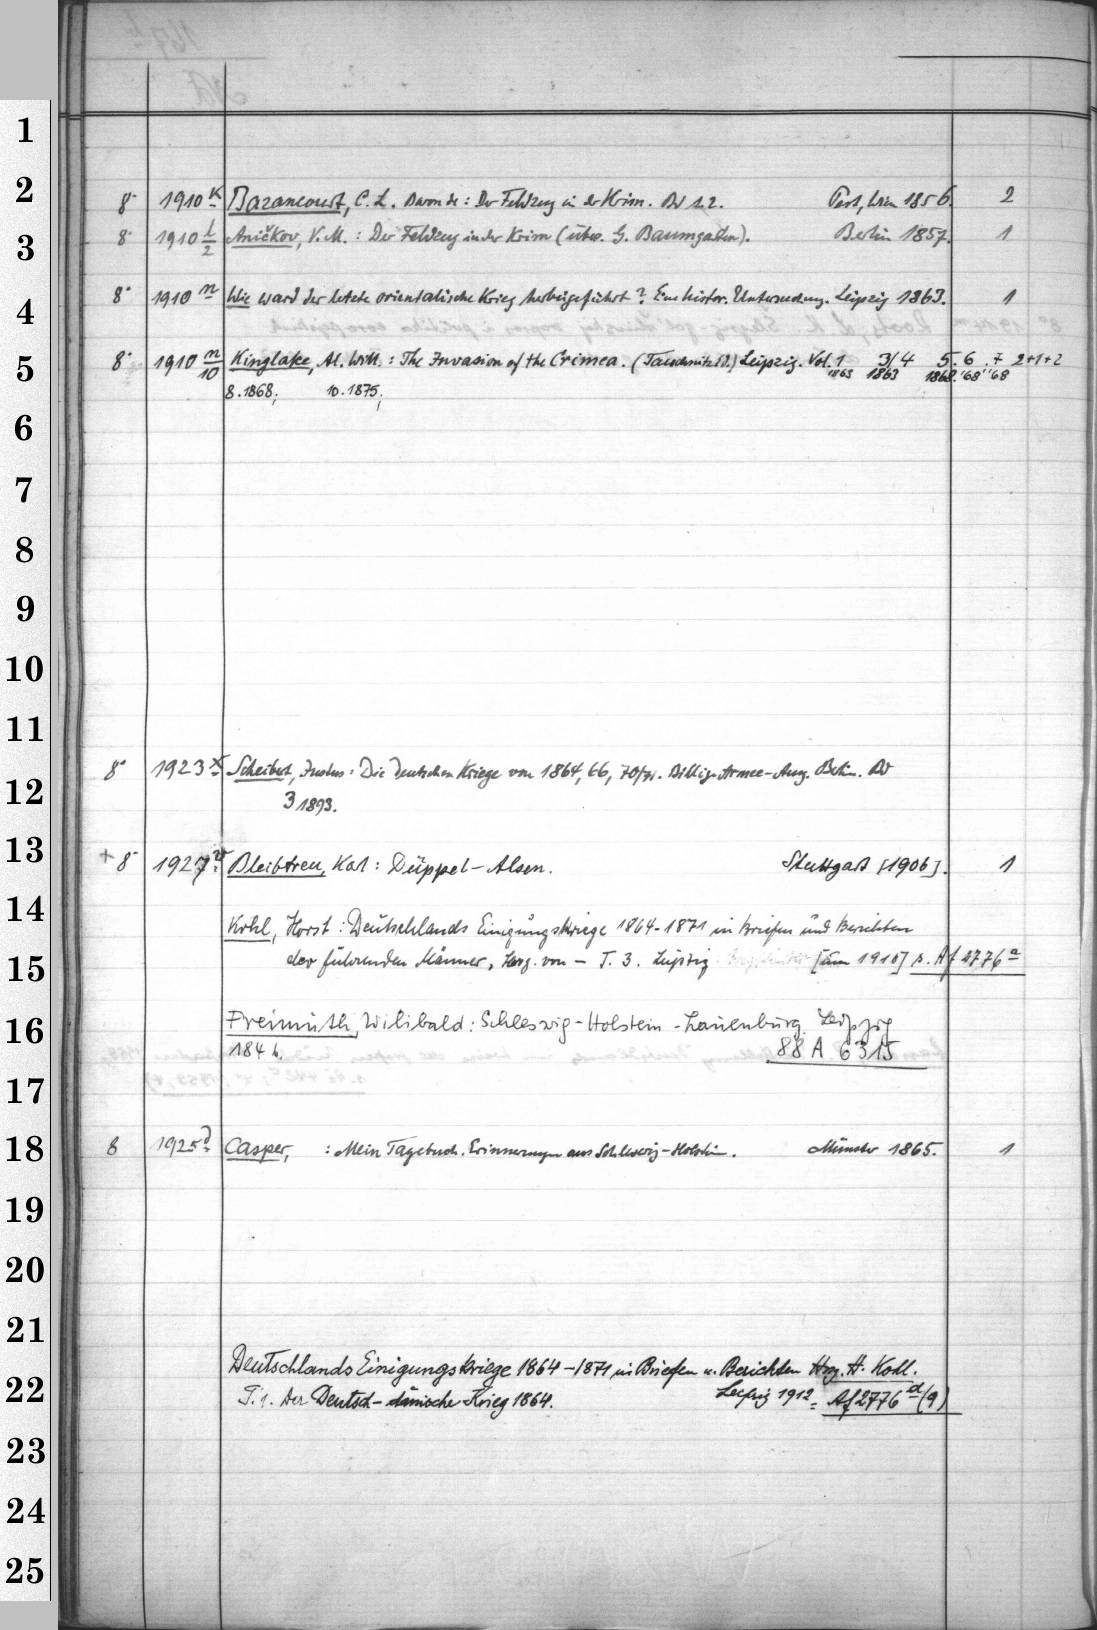 1
2
3
4
5
6
7
8
9
10
11
12
13
14
15
16
17
18
19
20
21
22
23
24
25
8° 1910 k Bazancourt, C. L. Baron de: Der Feldzug in der Krim. Bd 1.2. Pest, Wien 1856. 2
8° 1910 l/2 Aničkov, V. M.: Der Feldzug in der Krim (übers. G. Baumgarten). Berlin 1857. 1
8° 1910 m Wie ward der letzte orientalische Krieg herbeigeführt? Eine histor. Untersuchung. Leipzig 1863. 1
8° 1910 n/10 Kinglake, Al. Will.: The Invasion of the Crimea. (Tauchnitz Ed.) Leipzig. Vol. 1 3/4 5. 6. 7 2+1+2
1863 1863 1868. '68 '68
8. 1868; 10. 1875;
8° 1923 x Scheibert, Justus: Die deutschen Kriege von 1864, 66, 70/71. Billige Armee-Ausg. Berlin. Bd
3 1893.
+ 8° 1927 Bleibtreu, Karl: Düppel-Alsen. Stuttgart [1906]. 1
Kohl, Horst: Deutschlands Einigungskriege 1864-1871 in Briefen und Berichten
der führenden Männer, hrsg. von — T. 3. Leipzig [um 1910] s. Af 2776 a
Freimuth, Wilibald: Schleswig-Holstein-Lauenburg. Leipzig
1846. 88 A 6315
8 1925 d Casper, : Mein Tagebuch. Erinnerungen aus Schleswig-Holstein. Münster 1865. 1
Deutschlands Einigungskriege 1864-1871 in Briefen u. Berichten Hrg. H. Kohl.
T. 1. Der Deutsch-dänische Krieg 1864. Leipzig 1912 = Af 2776 d (9)